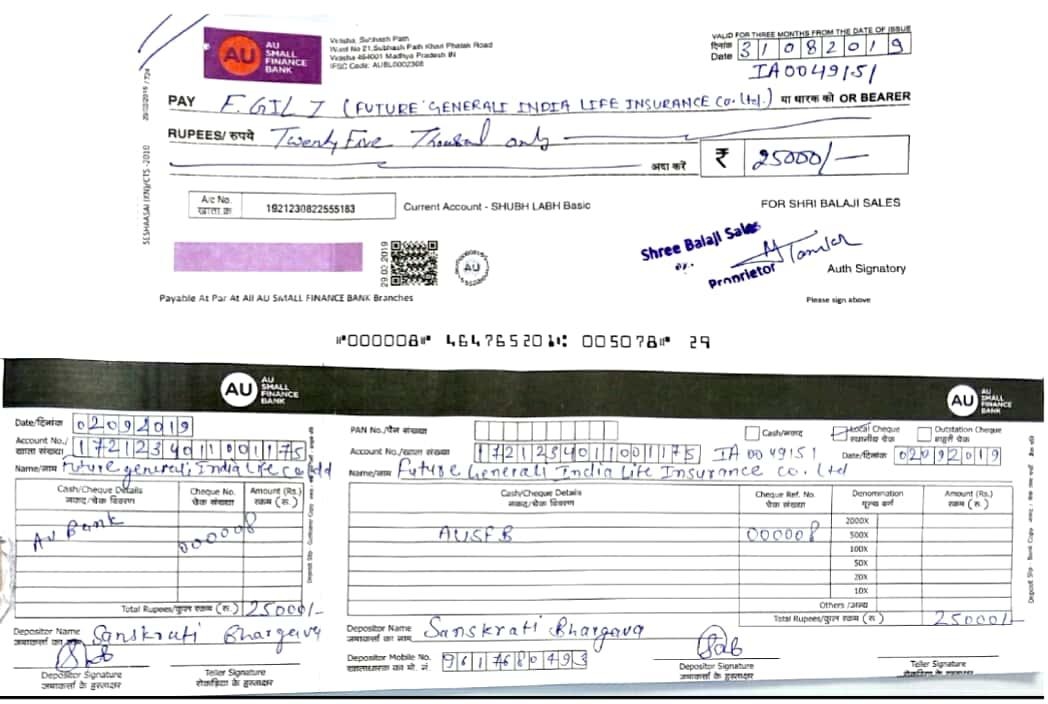 AU SMALL FINANCE BANK
Vidisha, Subhash Path
Ward No 21,Subhash Path Khari Phatak Road
Vidisha 464001 Madhya Pradesh IN
IFSC Code: AUBL0002308
VALID FOR THREE MONTHS FROM THE DATE OF ISSUE
दिनांक Date 31082019
IA0049151
PAY F.GILI (FUTURE GENERALI INDIA LIFE INSURANCE Co. Ltd.) या धारक को OR BEARER
RUPEES/ रुपये Twenty Five Thousand only
अदा करें ₹ 25000/-
A/c No. खाता.क्र 1921230822555183 Current Account - SHUBH LABH Basic
FOR SHRI BALAJI SALES
Shree Balaji Sales
Proprietor
Auth Signatory
Please sign above
29.03.2019
AU
Payable At Par At All AU SMALL FINANCE BANK Branches
SESHAASAI (XN)/CTS-2010
⑈000008⑈ 464765201⑆ 005078⑈ 29
AU SMALL FINANCE BANK
AU SMALL FINANCE BANK
Date/दिनांक 02092019
Account No./ खाता संख्या 1721234011001175
Name/नाम Future generali India Life Co Ltd
Cash/Cheque Details नकद/चेक विवरण Cheque No. चेक संख्या Amount (Rs.) रकम (रु.)
AU Bank 000008
Total Rupees/कुल रकम (रु.) 25000/-
Depositor Name जमाकर्ता का नाम Sanskrati Bhargava
Depositor Signature जमाकर्ता के हस्ताक्षर
Teller Signature रोकड़िया के हस्ताक्षर
Deposit Slip - Customer Copy
PAN No./पैन संख्या Cash/नकद Local Cheque स्थानीय चेक Outstation Cheque बाहरी चेक
Account No./खाता संख्या 1721234011001175 IA 0049151 Date/दिनांक 02092019
Name/नाम Future Generali India Life Insurance co. Ltd
Cash/Cheque Details नकद/चेक विवरण Cheque Ref. No. चेक संख्या Denomination मूल्य वर्ग Amount (Rs.) रकम (रु.)
AUSFB 000008
2000X
500X
100X
50X
20X
10X
Others /अन्य
Total Rupees/कुल रकम (रु.) 25000/-
Depositor Name जमाकर्ता का नाम Sanskrati Bhargava
Depositor Mobile No. खाताधारक का मो. नं. 9617680493
Depositor Signature जमाकर्ता के हस्ताक्षर
Teller Signature रोकड़िया के हस्ताक्षर
Deposit Slip - Bank Copy